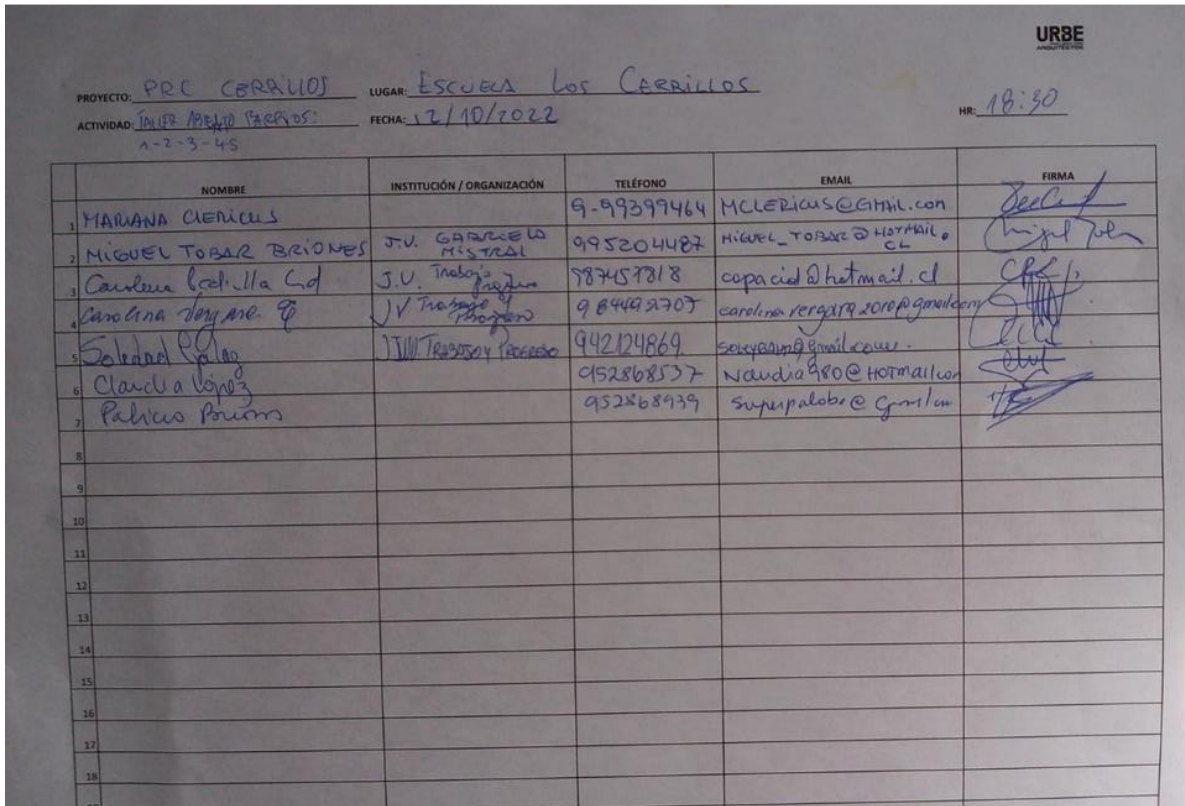 URBE
ARQUITECTOS
PROYECTO: PRC CERRILLOS LUGAR: ESCUELA LOS CERRILLOS
ACTIVIDAD: TALLER ABIERTO BARRIOS: FECHA: 12/10/2022 HR: 18:30
1-2-3-4-5
NOMBRE INSTITUCIÓN / ORGANIZACIÓN TELÉFONO EMAIL FIRMA
1 MARIANA CLERICUS 9-99399464 MCLERICUS@GMAIL.COM
2 MIGUEL TOBAR BRIONES J.V. GABRIELA MISTRAL 995204487 MIGUEL_TOBAR@HOTMAIL.CL
3 Carolina J.V. Trabajo y Progreso 987457818 copacid@hotmail.cl
4 Carolina Vergara J V Trabajo y Progreso 984492707 carolina.vergara2010@gmail.com
5 Soledad TRABAJO Y PROGRESO 942124869
6 Claudia López 952868537 Nclaudia980@HOTMAIL.COM
7 952868939
8
9
10
11
12
13
14
15
16
17
18